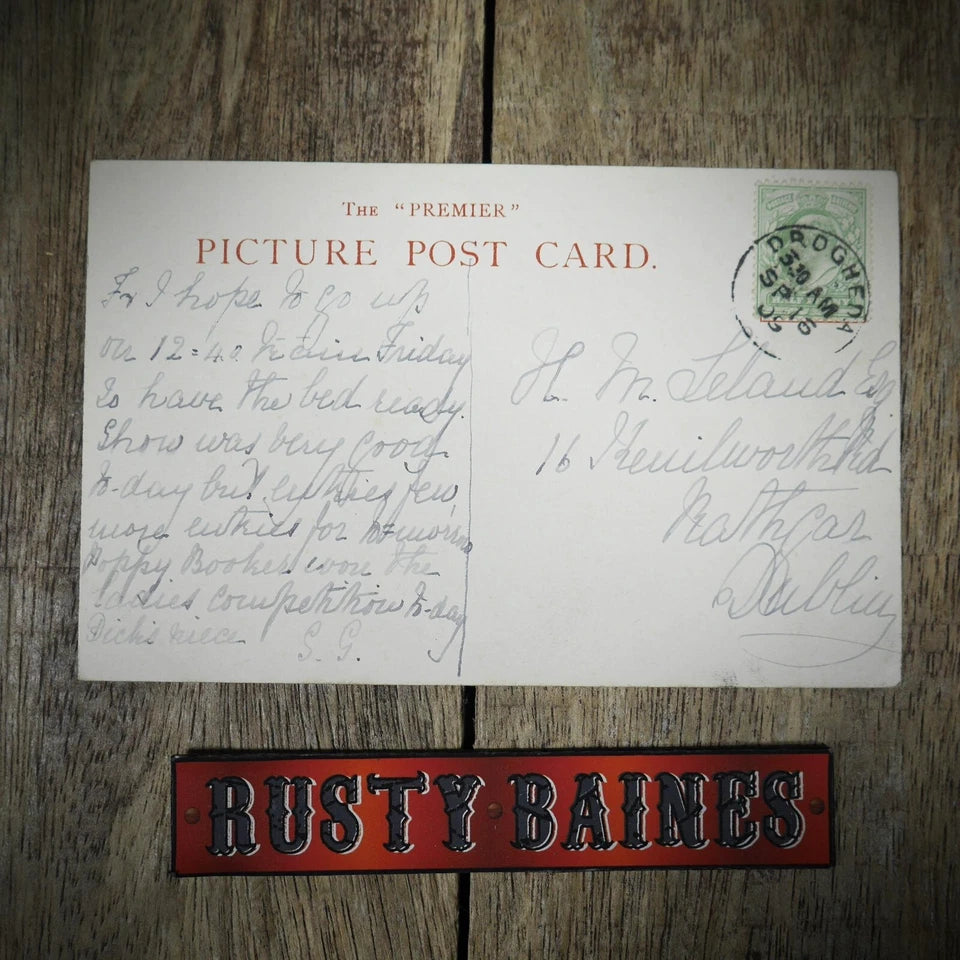 The "PREMIER"
PICTURE POST CARD.
DROGHEDA
3.30 AM
SP 16
I hope to go up
on 12=40 train Friday
So have the bed ready.
Show was very good
to-day but entries few,
more entries for to-morrow
Poppy won the
Ladies competition to-day
Dick's niece S. G.
H. M. Leland Esq
16 Kenilworth Rd
Rathgar
Dublin
RUSTY BAINES